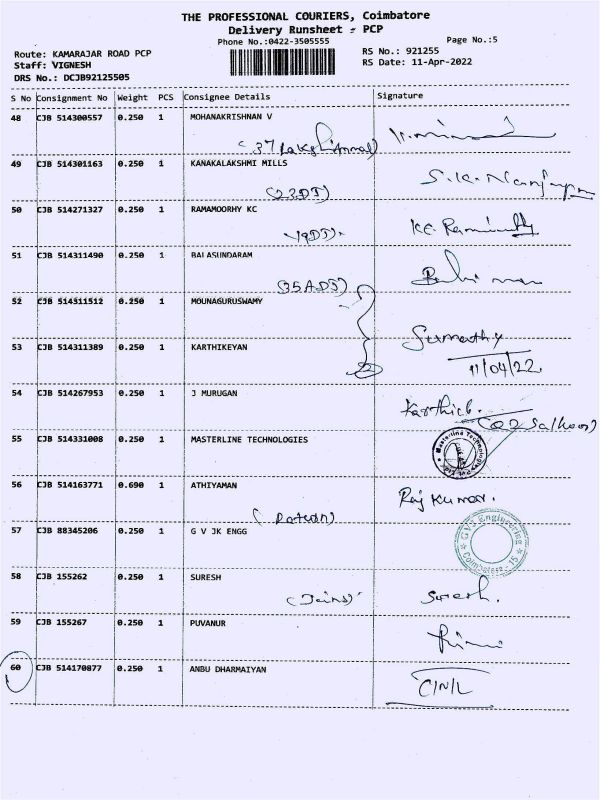 THE PROFESSIONAL COURIERS, Coimbatore
Delivery Runsheet - PCP
Phone No.:0422-3505555
Page No.:5
Route: KAMARAJAR ROAD PCP
RS No.: 921255
Staff: VIGNESH
RS Date: 11-Apr-2022
DRS No.: DCJB92125505
S No Consignment No Weight PCS Consignee Details Signature
48 CJB 514300557 0.250 1 MOHANAKRISHNAN V
49 CJB 514301163 0.250 1 KANAKALAKSHMI MILLS
(23DJ)
50 CJB 514271327 0.250 1 RAMAMOORHY KC
51 CJB 514311490 0.250 1 BALASUNDARAM
(35ADJ)
52 CJB 514311512 0.250 1 MOUNAGURUSWAMY
53 CJB 514311389 0.250 1 KARTHIKEYAN
Sumathy
11/04/22.
54 CJB 514267953 0.250 1 J MURUGAN
Karthick.
55 CJB 514331008 0.250 1 MASTERLINE TECHNOLOGIES
56 CJB 514163771 0.690 1 ATHIYAMAN
Raj Kumar.
57 CJB 88345206 0.250 1 G V JK ENGG
Engineering
Coimbatore - 15
58 CJB 155262 0.250 1 SURESH
Suresh.
59 CJB 155267 0.250 1 PUVANUR
60 CJB 514170877 0.250 1 ANBU DHARMAIYAN